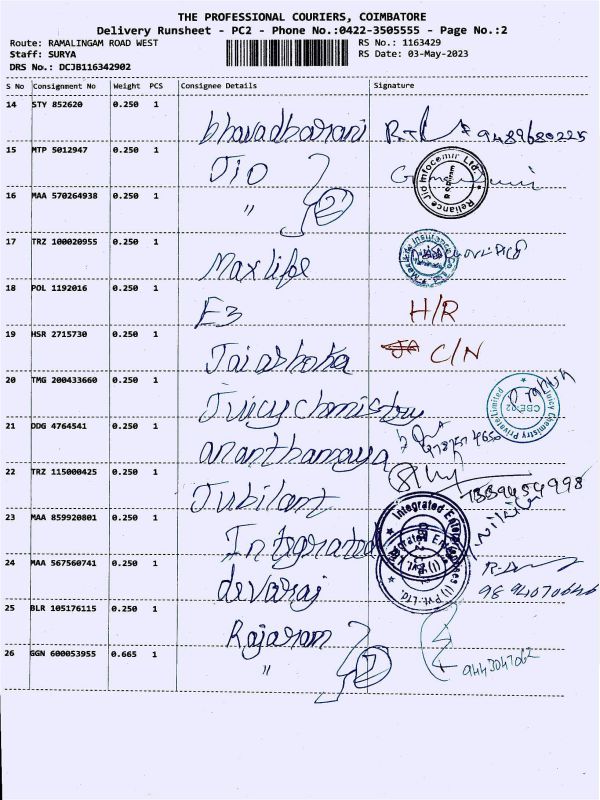 THE PROFESSIONAL COURIERS, COIMBATORE
Delivery Runsheet - PC2 - Phone No.:0422-3505555 - Page No.:2
Route: RAMALINGAM ROAD WEST RS No.: 1163429
Staff: SURYA RS Date: 03-May-2023
DRS No.: DCJB116342902
S No Consignment No Weight PCS Consignee Details Signature
14 STY 852620 0.250 1 bhavadharani 9489680225
15 MTP 5012947 0.250 1 Jio Reliance Jio Infocomm Ltd.
16 MAA 570264938 0.250 1 " 2
17 TRZ 100020955 0.250 1 Max life
18 POL 1192016 0.250 1 E3 H/R
19 HSR 2715730 0.250 1 Jai ashoka C/N
20 TMG 200433660 0.250 1 Juicy Chemistry Juicy Chemistry Private Limited CBE-02
21 DDG 4764541 0.250 1 ananthamaya
22 TRZ 115000425 0.250 1 Jubilant
23 MAA 859920801 0.250 1 Integrated Integrated Enterprises (I) Pvt. Ltd.
24 MAA 567560741 0.250 1 devaraj
25 BLR 105176115 0.250 1 Rajaram
26 GGN 600053955 0.665 1 " 2 9443047062